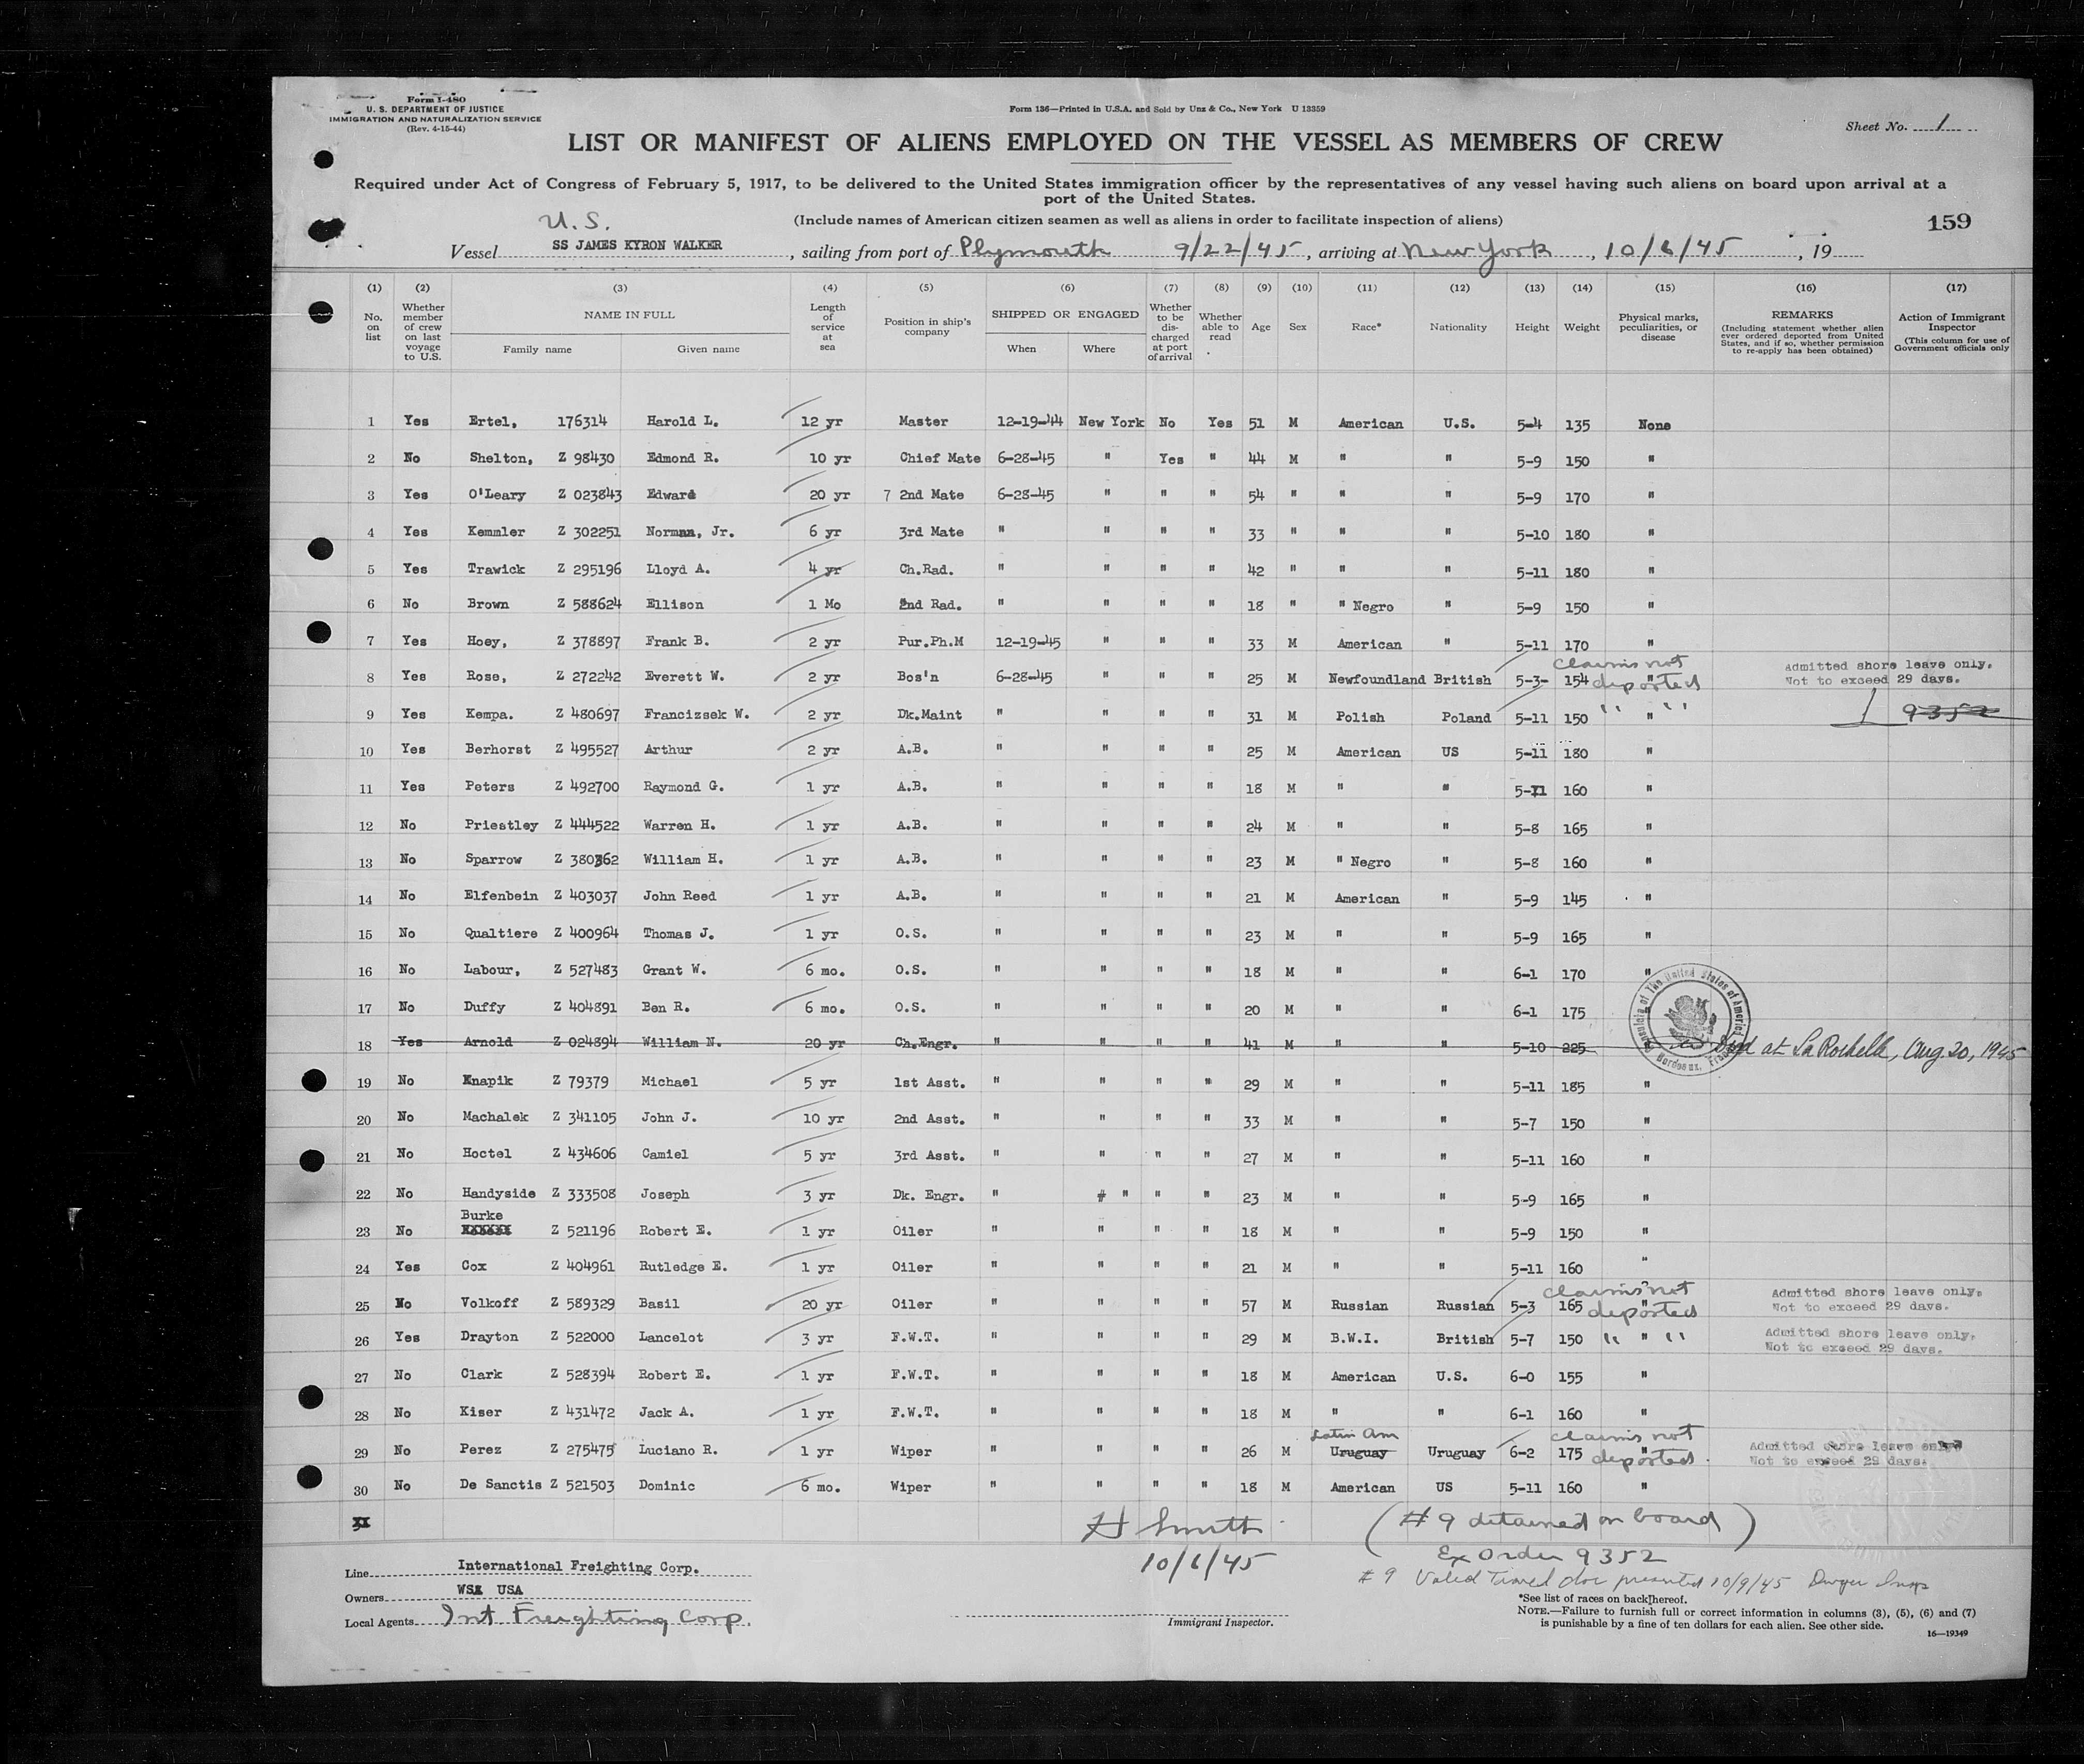 Form I-480
U. S. DEPARTMENT OF JUSTICE
IMMIGRATION AND NATURALIZATION SERVICE
(Rev. 4-15-44)
Form 136—Printed in U.S.A. and Sold by Unz & Co., New York U 13359
Sheet No. 1
LIST OR MANIFEST OF ALIENS EMPLOYED ON THE VESSEL AS MEMBERS OF CREW
Required under Act of Congress of February 5, 1917, to be delivered to the United States immigration officer by the representatives of any vessel having such aliens on board upon arrival at a
port of the United States.
(Include names of American citizen seamen as well as aliens in order to facilitate inspection of aliens)
159
U.S.
Vessel SS JAMES KYRON WALKER, sailing from port of Plymouth 9/22/45, arriving at New York, 10/6/45, 19
(1) (2) (3) (4) (5) (6) (7) (8) (9) (10) (11) (12) (13) (14) (15) (16) (17)
No. on list
Whether member of crew on last voyage to U.S.
NAME IN FULL
Family name Given name
Length of service at sea
Position in ship's company
SHIPPED OR ENGAGED
When Where
Whether to be discharged at port of arrival
Whether able to read
Age
Sex
Race*
Nationality
Height
Weight
Physical marks, peculiarities, or disease
REMARKS
(Including statement whether alien ever ordered deported from United States, and if so, whether permission to re-apply has been obtained)
Action of Immigrant Inspector
(This column for use of Government officials only
1 Yes Ertel, 176314 Harold L. 12 yr Master 12-19-44 New York No Yes 51 M American U.S. 5-4 135 None
2 No Shelton, Z 98430 Edmond R. 10 yr Chief Mate 6-28-45 " Yes " 44 M " " 5-9 150 "
3 Yes O'Leary Z 023843 Edward 20 yr 7 2nd Mate 6-28-45 " " " 54 " " " 5-9 170 "
4 Yes Kemmler Z 302251 Norman, Jr. 6 yr 3rd Mate " " " " 33 " " " 5-10 180 "
5 Yes Trawick Z 295196 Lloyd A. 4 yr Ch.Rad. " " " " 42 " " " 5-11 180 "
6 No Brown Z 588624 Ellison 1 Mo 2nd Rad. " " " " 18 " " Negro " 5-9 150 "
7 Yes Hoey, Z 378897 Frank B. 2 yr Pur.Ph.M 12-19-45 " " " 33 M American " 5-11 170 "
8 Yes Rose, Z 272242 Everett W. 2 yr Bos'n 6-28-45 " " " 25 M Newfoundland British 5-3- 154 " claims not deported Admitted shore leave only. Not to exceed 29 days.
9 Yes Kempa. Z 480697 Francizsek W. 2 yr Dk.Maint " " " " 31 M Polish Poland 5-11 150 " " " 9352
10 Yes Berhorst Z 495527 Arthur 2 yr A.B. " " " " 25 M American US 5-11 180 "
11 Yes Peters Z 492700 Raymond G. 1 yr A.B. " " " " 18 M " " 5-11 160 "
12 No Priestley Z 444522 Warren H. 1 yr A.B. " " " " 24 M " " 5-8 165 "
13 No Sparrow Z 380362 William H. 1 yr A.B. " " " " 23 M " Negro " 5-8 160 "
14 No Elfenbein Z 403037 John Reed 1 yr A.B. " " " " 21 M American " 5-9 145 "
15 No Qualtiere Z 400964 Thomas J. 1 yr O.S. " " " " 23 M " " 5-9 165 "
16 No Labour, Z 527483 Grant W. 6 mo. O.S. " " " " 18 M " " 6-1 170 "
17 No Duffy Z 404891 Ben R. 6 mo. O.S. " " " " 20 M " " 6-1 175
18 Yes Arnold Z 024894 William N. 20 yr Ch.Engr. " " " " 41 M " " 5-10 225 Died at La Rochelle, Aug. 20, 1945
Consulate of The United States of America Bordeaux, France
19 No Knapik Z 79379 Michael 5 yr 1st Asst. " " " " 29 M " " 5-11 185 "
20 No Machalek Z 341105 John J. 10 yr 2nd Asst. " " " " 33 M " " 5-7 150 "
21 No Hoctel Z 434606 Camiel 5 yr 3rd Asst. " " " " 27 M " " 5-11 160 "
22 No Handyside Z 333508 Joseph 3 yr Dk. Engr. " # " " " 23 M " " 5-9 165 "
23 No Burke Z 521196 Robert E. 1 yr Oiler " " " " 18 M " " 5-9 150 "
24 Yes Cox Z 404961 Rutledge E. 1 yr Oiler " " " " 21 M " " 5-11 160 "
25 No Volkoff Z 589329 Basil 20 yr Oiler " " " " 57 M Russian Russian 5-3 165 " claims not deported Admitted shore leave only. Not to exceed 29 days.
26 Yes Drayton Z 522000 Lancelot 3 yr F.W.T. " " " " 29 M B.W.I. British 5-7 150 " " " Admitted shore leave only. Not to exceed 29 days.
27 No Clark Z 528394 Robert E. 1 yr F.W.T. " " " " 18 M American U.S. 6-0 155 "
28 No Kiser Z 431472 Jack A. 1 yr F.W.T. " " " " 18 M " " 6-1 160 "
29 No Perez Z 275475 Luciano R. 1 yr Wiper " " " " 26 M Latin Am Uruguay Uruguay 6-2 175 " claims not deported. Admitted shore leave only Not to exceed 29 days.
30 No De Sanctis Z 521503 Dominic 6 mo. Wiper " " " " 18 M American US 5-11 160 "
H Smith
10/6/45
(#9 detained on board)
Ex Order 9352
#9 Valid Travel doc presented 10/9/45 Dwyer Insp
Line International Freighting Corp.
Owners WSA USA
Local Agents Int. Freighting Corp.
Immigrant Inspector.
*See list of races on back thereof.
NOTE.—Failure to furnish full or correct information in columns (3), (5), (6) and (7)
is punishable by a fine of ten dollars for each alien. See other side.
16—19349